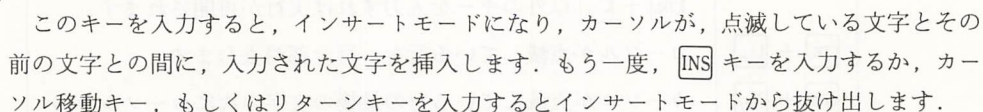 このキーを入力すると，インサートモードになり，カーソルが，点滅している文字とその
前の文字との間に，入力された文字を挿入します．もう一度，INSキーを入力するか，カー
ソル移動キー，もしくはリターンキーを入力するとインサートモードから抜け出します．